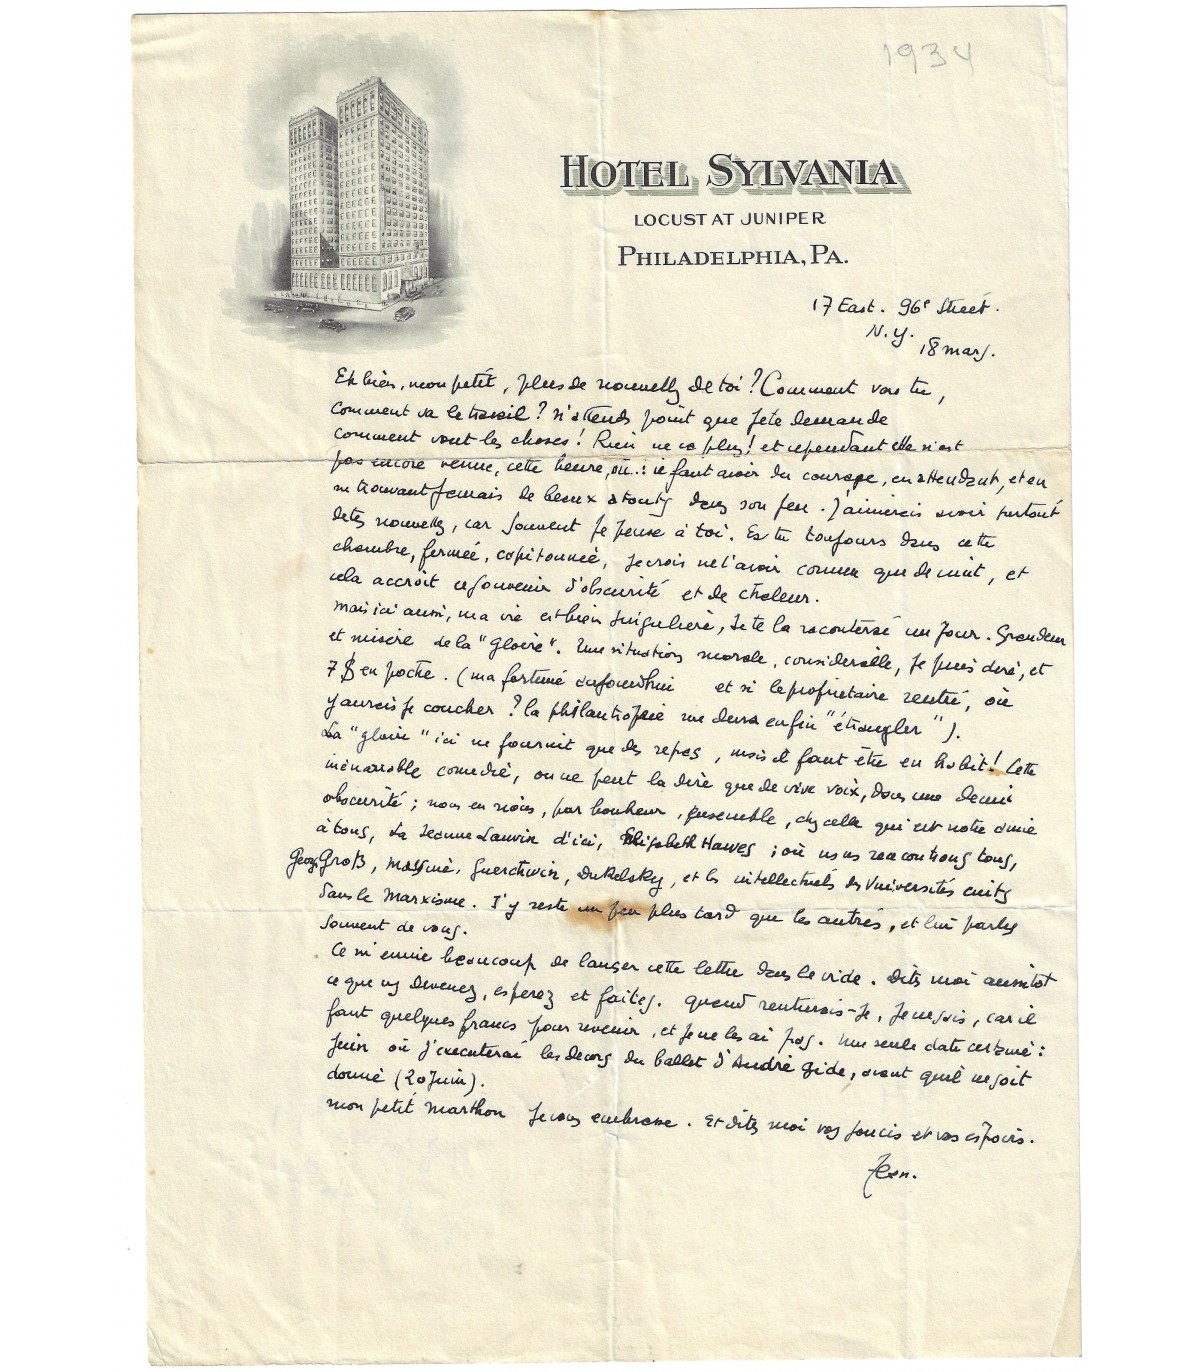 1934
HOTEL SYLVANIA
LOCUST AT JUNIPER
PHILADELPHIA, PA.
17 East. 96e Street.
N.Y.
18 mars.
Eh bien, mon petit, plus de nouvelles de toi? Comment vas tu,
comment va le travail? N'attends point que je te demande
comment vont les choses! Rien ne va plus! et cependant elle n'est
pas encore venue, cette heure, où : il faut avoir du courage, en attendant, et en
ne trouvant jamais de beaux atouts dans son jeu. J'aimerais avoir surtout
de tes nouvelles, car souvent je pense à toi. Es tu toujours dans cette
chambre, fermée, capitonnée, je crois ne l'avoir connue que de nuit, et
cela accroit ce souvenir d'obscurité et de chaleur.
Mais ici aussi, ma vie est bien singulière, je te la raconterai un jour. Grandeur
et misère de la "gloire". Une situation morale, considerable, je puis dire, et
7 $ en poche. (ma fortune aujourdhui et si le proprietaire rentre, où
yaurais je coucher? la philantropie me devra enfin "étrangler").
La "gloire" ici ne fournit que des repas, mais il faut être en habit! Cette
inénarrable comedie, on ne peut la dire que de vive voix, dans une demie
obscurité; nous en rions, par bonheur, ensemble, chez celle qui est notre amie
à tous, La Jeanne Lanvin d'ici, Elizabeth Hawes; où nous rencontrons tous,
Georg Groß, Massine, Guerchwin, Dukelsky, et les intellectuels des Universités cuits
dans le Marxisme. J'y reste un peu plus tard que les autres, et lui parle
souvent de vous.
Ce m'ennuie beaucoup de lancer cette lettre dans le vide. Dites moi aussitot
ce que vs devenez, esperez et faites. Quand rentrerais-je, je ne sais, car il
faut quelques francs pour revenir, et je ne les ai pas. Une seule date certaine:
Juin où j'executerai les decors du ballet d'André Gide, avant qu'il ne soit
donné (20 Juin).
Mon petit Marthon je vous embrasse. Et dites moi vos soucis et vos espoirs.